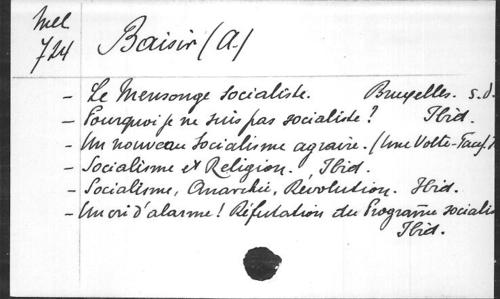 Mel
724
Baisir (A.)
- Le Mensonge socialiste. Bruxelles. s.d.
- Pourquoi je ne suis pas socialiste? Ibid.
- Un nouveau Socialisme agraire. (Une Volte-Face).
- Socialisme et Religion. , Ibid.
- Socialisme, Anarchie, Revolution. Ibid.
- Un cri d'alarme! Réfutation du Programe socialis
Ibid.